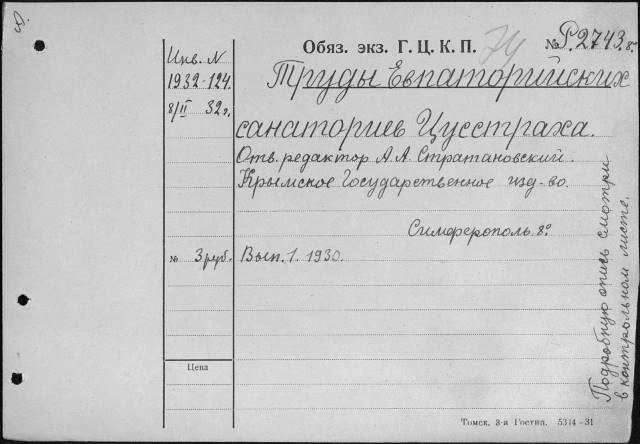 Обяз. экз. Г. Ц. К. П.
74
№ Р.2743.8°
Инв. N
1932-124.
8/II 32г.
Труды Евпаторийских
санаториев Цусстраха.
Отв. редактор А.А. Стратановский.
Крымское Государственное изд-во.
Симферополь. 8°
№ 3 руб. Вып. 1. 1930.
Цена
Подробную опись смотри
в контрольном листе.
Томск. 3-я Гостип. 5314—31